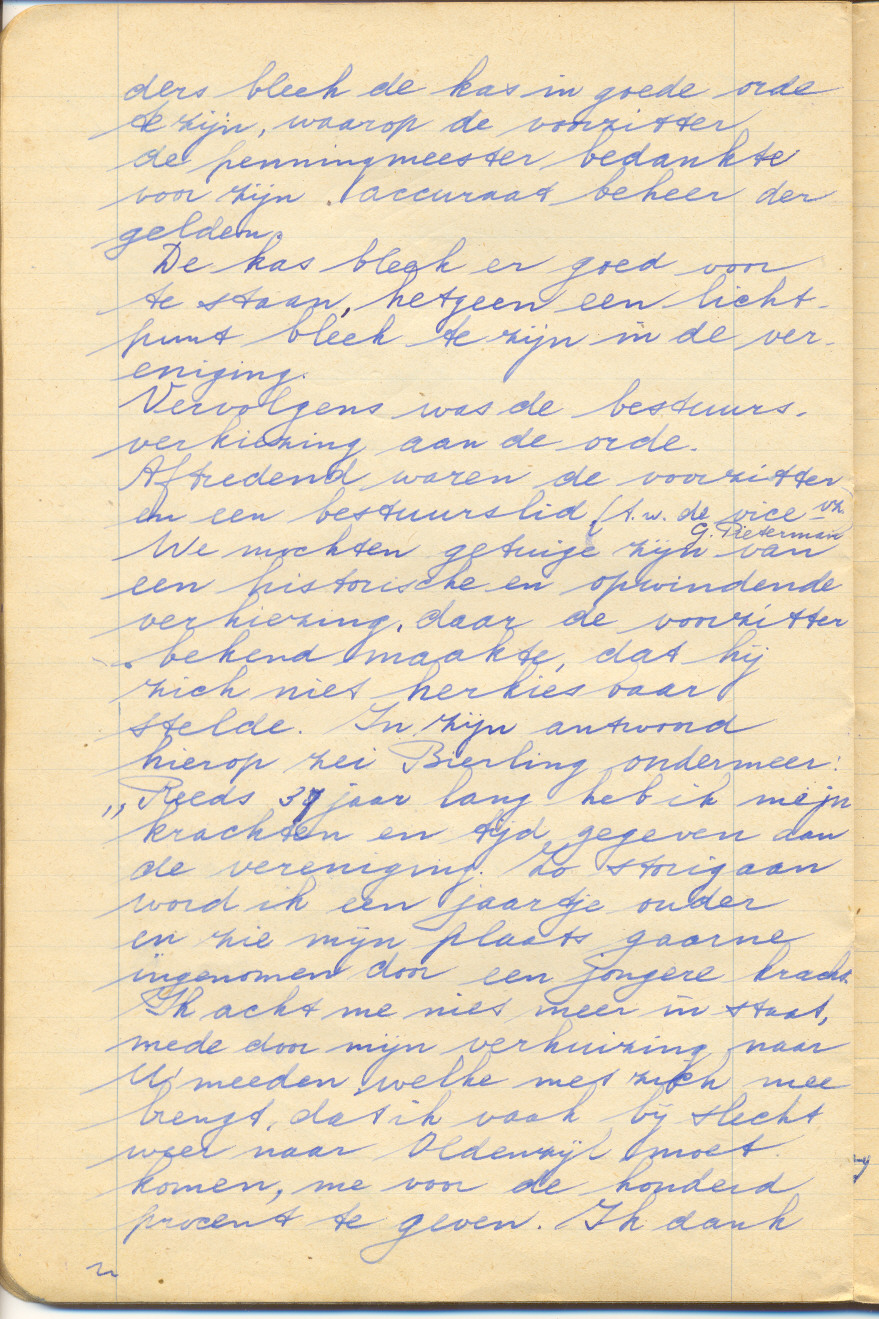 ders bleek de kas in goede orde
te zijn, waarop de voorzitter
de penningmeester bedankte
voor zijn accuraat beheer der
gelden.
De kas bleek er goed voor
te staan, hetgeen een licht-
punt bleek te zijn in de ver-
eniging.
Vervolgens was de bestuurs-
verkiezing aan de orde.
Aftredend waren de voorzitter
en een bestuurslid, (t.w. de vice-vz.
G. Pieterman
We mochten getuige zijn van
een historische en opwindende
verkiezing, daar de voorzitter
bekend maakte, dat hij
zich niet herkiesbaar
stelde. In zijn antwoord
hierop zei Bierling ondermeer:
„Reeds 37 jaar lang heb ik mijn
krachten en tijd gegeven aan
de vereniging. Zo storigaan
word ik een jaartje ouder
en zie mijn plaats gaarne
ingenomen door een jongere kracht.
Ik acht me niet meer in staat,
mede door mijn verhuizing naar
U'meeden, welke met zich mee
brengt, dat ik vaak bij slecht
weer naar Oldenzijl moet
komen, me voor de honderd
procent te geven. Ik dank